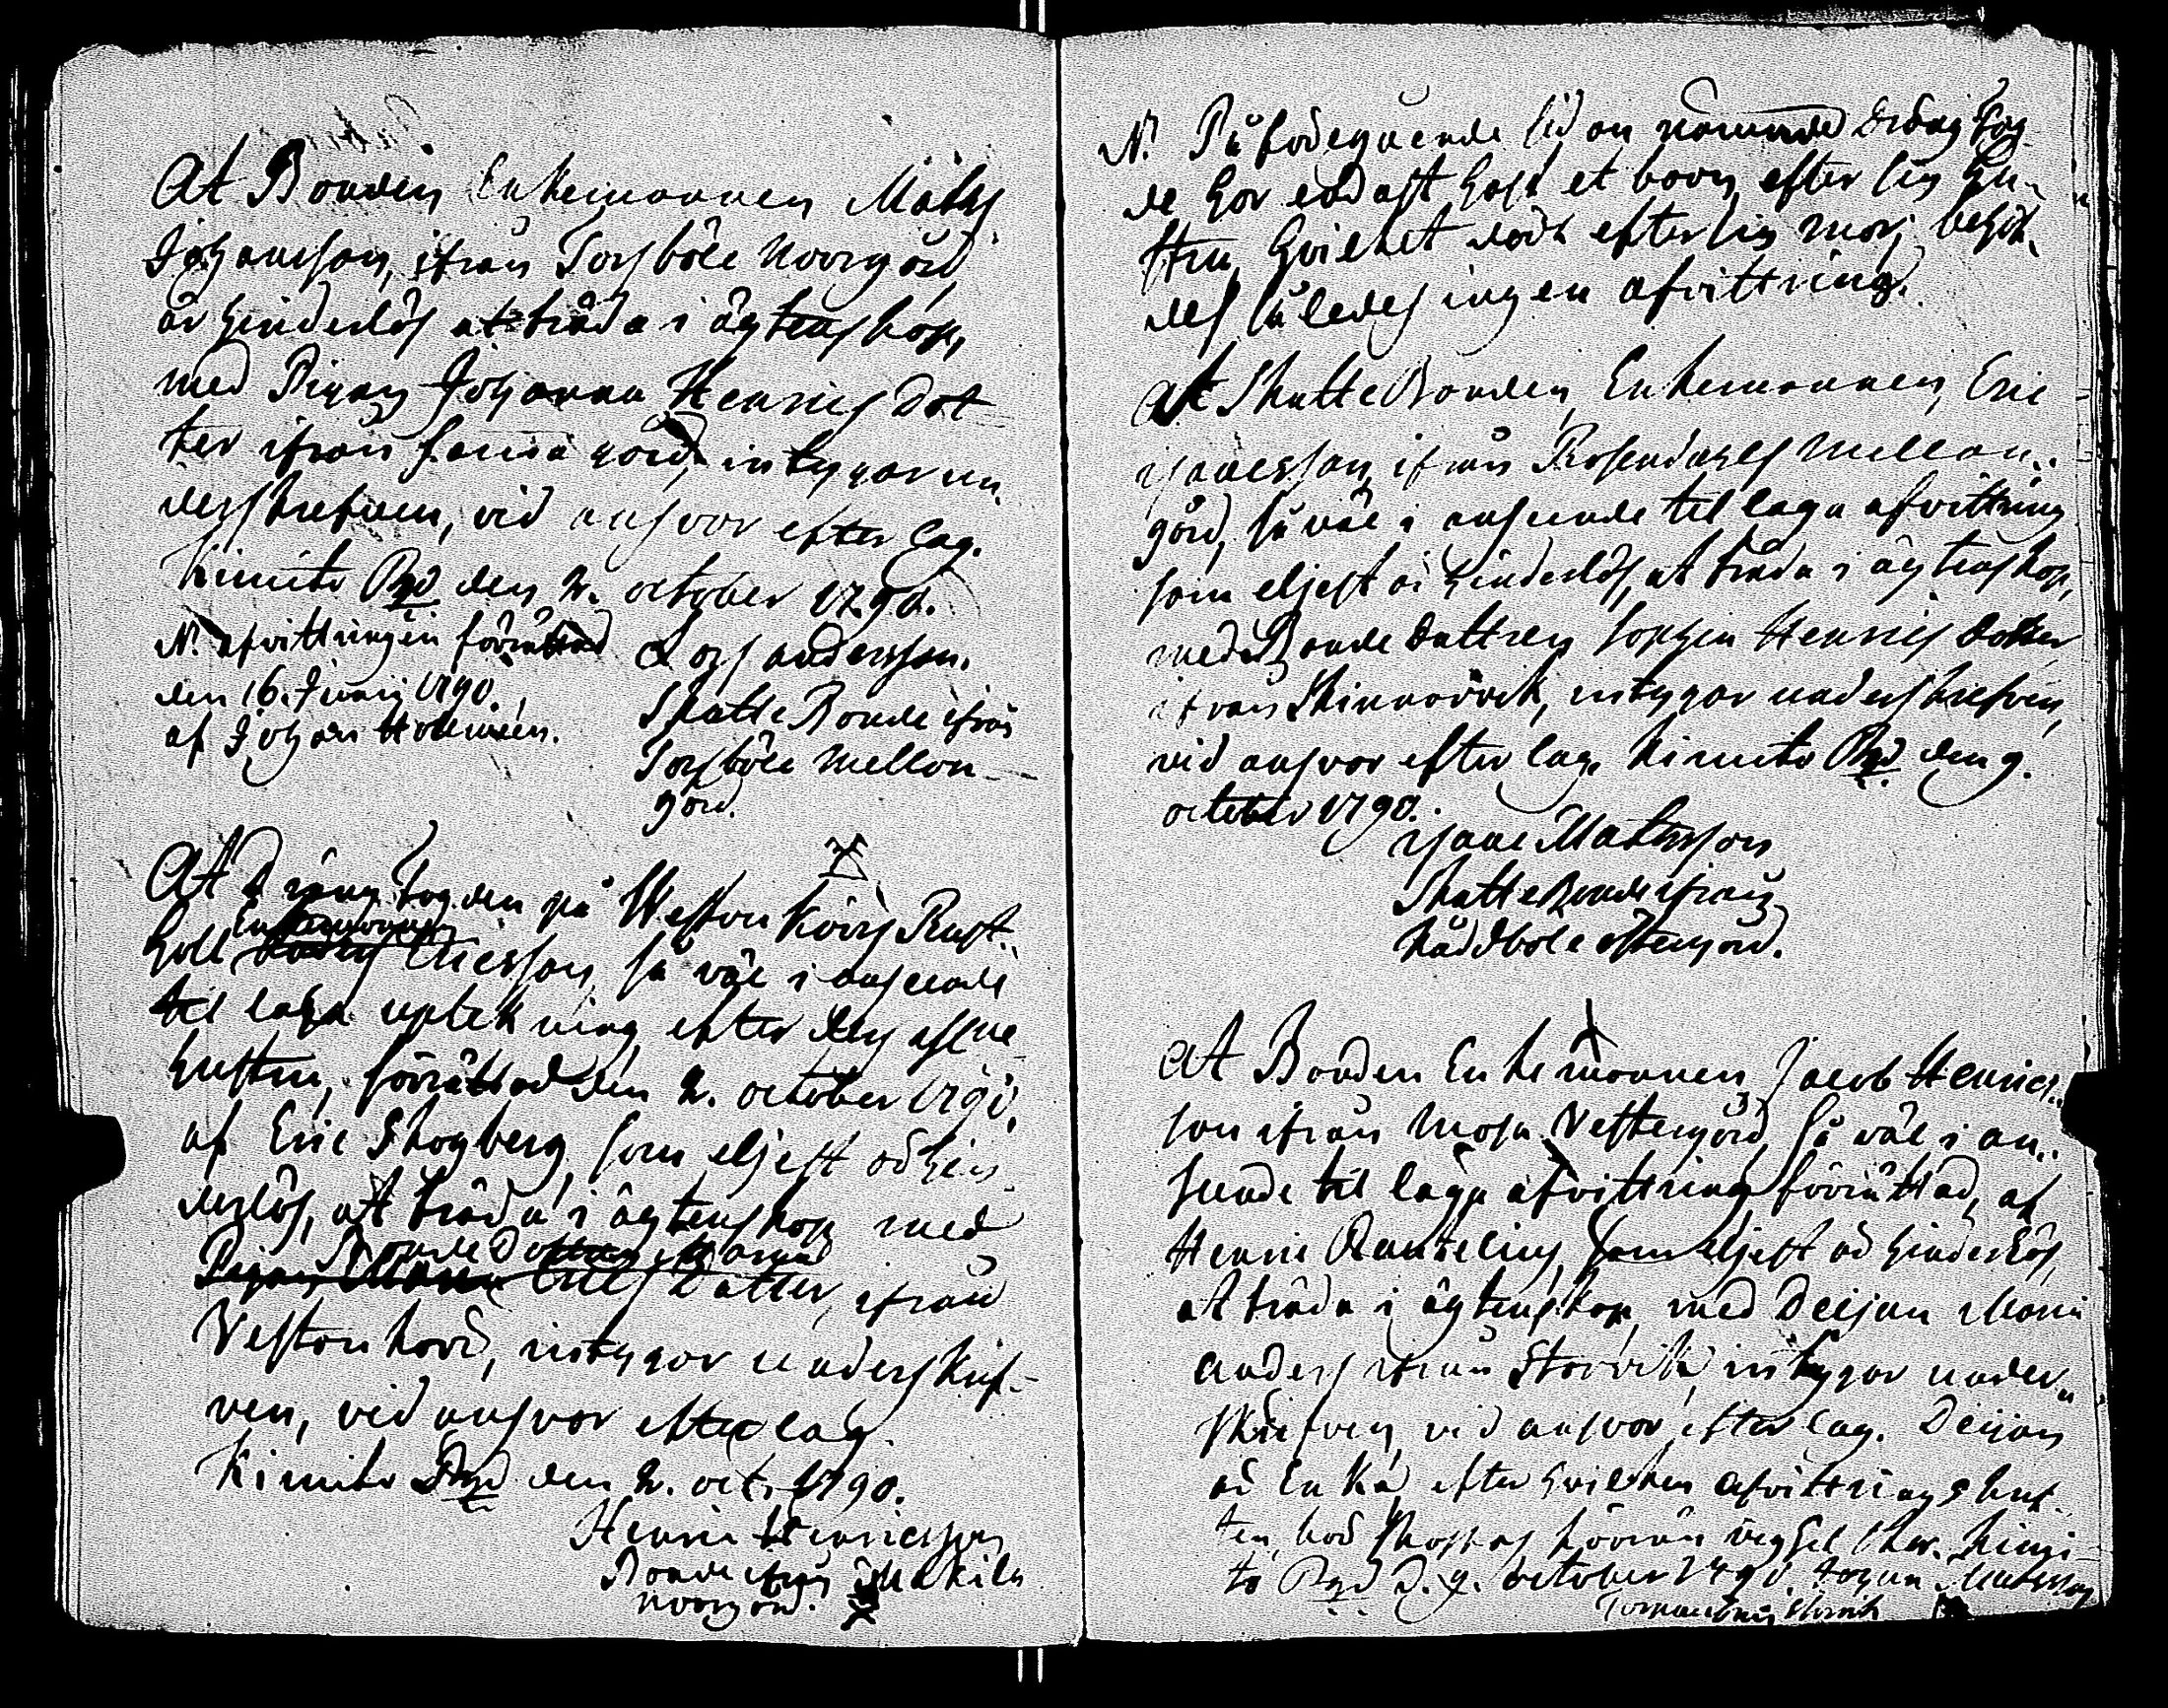 At Bonden Enkemannen Mats
Johansson, ifrån Torsböle Norrgård
är hinderlös at träda i ägtenskap,
med Pigan Johanna Henrics dot
ter ifrån samma gård, intygar un
derskrefven, vid answar efter lag.
Kimito Pgd den 2. october 1790.
N. afvittringen förrättad
den 16. Junij 1790.
af Johan Holmén.
Lars andersson.
Skatte Bonde ifrån
Torsböle Mellan
gård.
At Drängfogden på Westankärrs Rust
håll Enkemannen Ericsson, så väl i anseende
til laga uptekning efter des aflne
hustru, förrättad den 2. october 1790.
af Eric Skogberg, som eljest är hin
derlös, at träda i ägtenskap med
Bonde Dottren Maria
Pigan Maria Erics Dotter, ifrån
Vestankärr, intygar underskrif-
ven, vid answar efter lag.
Kimito Pgd den 2. oct. 1790.
Henric Henricsson
Bonde ifrån Makila
norrgård.
N. På föregående sidan nämnde Drängfog
de har endast haft et barn, efter sin hu-
stru, hvilket dödt efter sin mor; behöf
des således ingen afvittring.
At Skatte Bonden, Enkemannen, Eric
Isaacsson, ifrån Rosendahls Mellan
gård, så väl i anseende til laga afvittring
som eljest är hinderlös, at träda i ägtenskap,
med Bonde dottren Sophia Henrics dotter
ifrån Skinnarvik, intygar underskrefven,
vid answar efter lag. Kimito Pgd den 9.
october 1790.
Isaac Matsson
Skatte Bonde ifrån
Råddböle östergård.
At Bonden Enkemannen Jacob Henrics
son ifrån Mosa Vestergård, så väl i an
seende til laga afvittring förrättad, af
Henric Ranzelius, som eljest är hinderlös,
at träda i ägtenskap med Deijan Maria
anders ifrån Storvik, intygar under
skrefven, vid answar efter lag. Deijan
är Enka efter hvilken afvittrings
Kimi
to Pgd d. 9. october 1790. Johan Matsson
Storvik